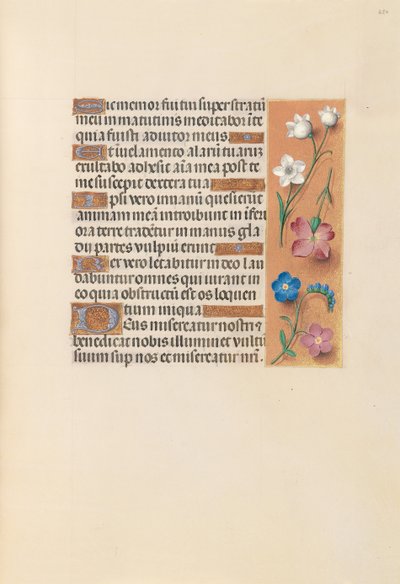 Sic memor fui tui super stratū
meū in matutinis meditabor ī te
quia fuisti adiutor meus.
Et in velamento alarū tuarū
exultabo adhesit aīa mea post te
me suscepit dextera tua
Ipsi vero in vanū quesierūt
animam meā introibunt in īferi
ora terre tradētur in manus gla
dii partes vulpiū erunt
Rex vero letabitur in deo lau
dabuntur omnes qui iurant in
eo quia obstructū est os loquen
tium iniqua
Deus misereatur nostri ⁊
benedicat nobis illuminet vultū
suum sup nos et misereatur nr̄i.